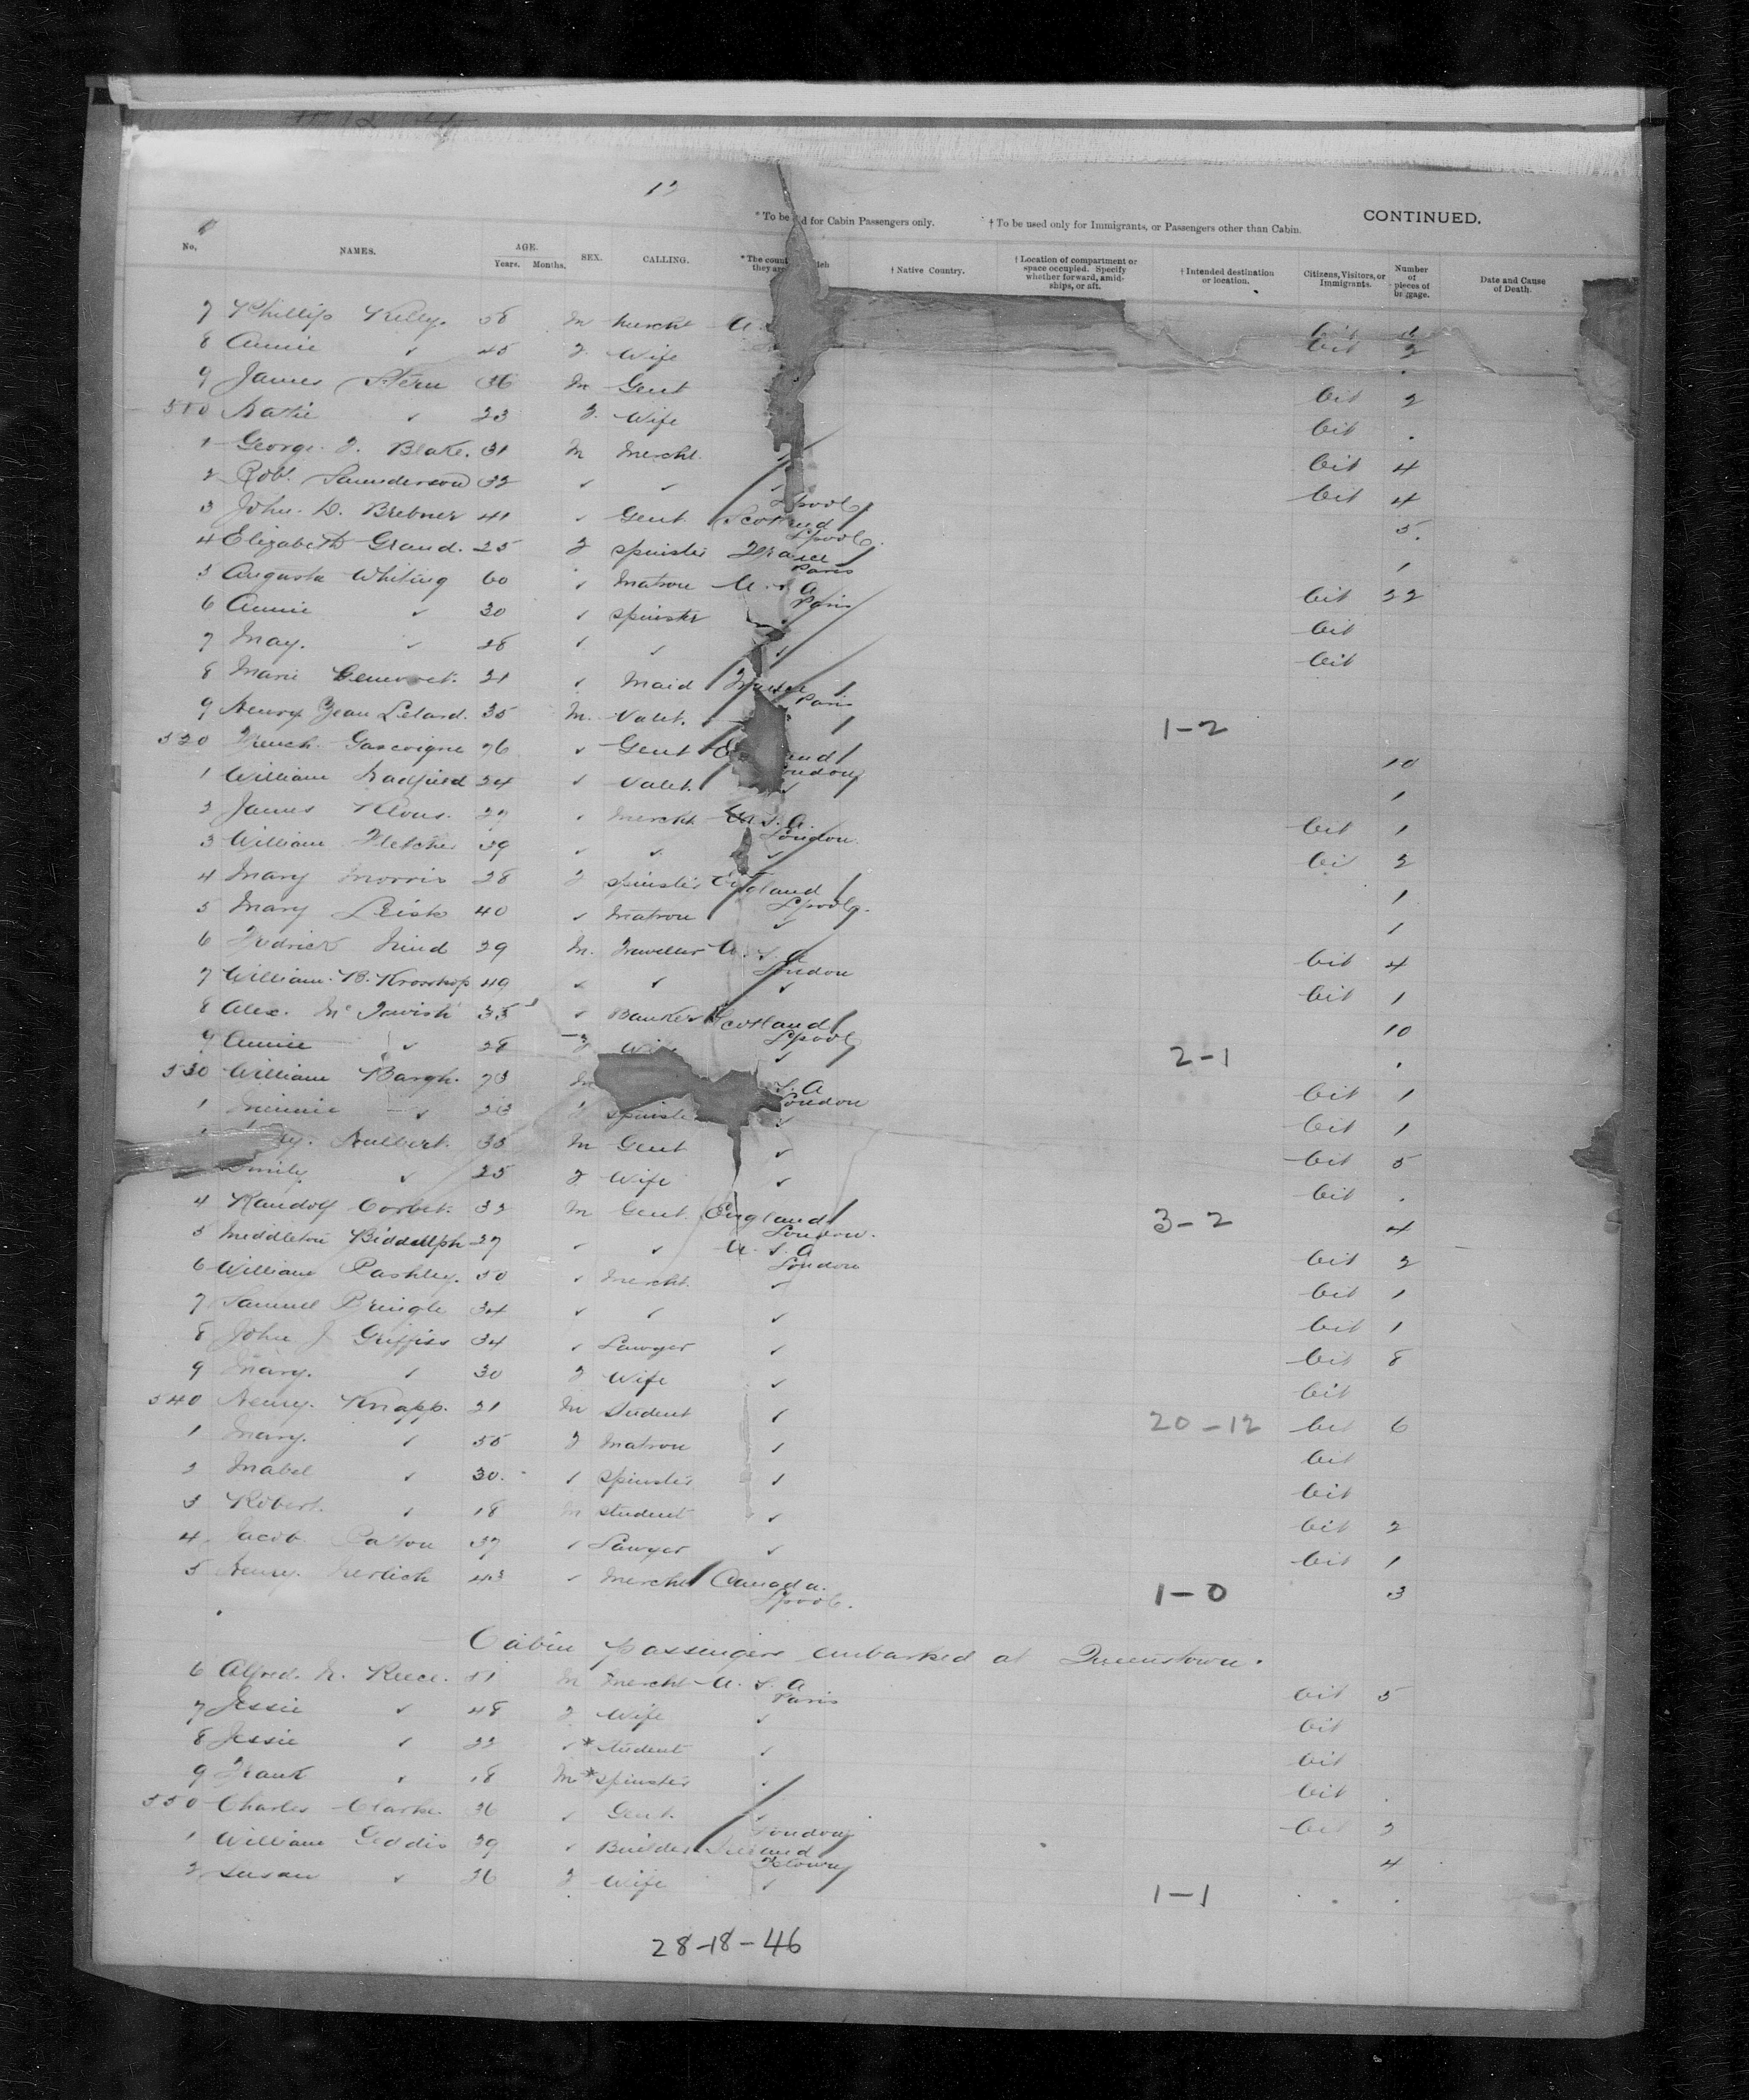 12
* To be d for Cabin Passengers only. † To be used only for Immigrants, or Passengers other than Cabin. CONTINUED.
No. NAMES. AGE. Years. Months. SEX. CALLING. * The count they are † Native Country. † Location of compartment or space occupied. Specify whether forward, amidships, or aft. † Intended destination or location. Citizens, Visitors, or Immigrants. Number of pieces of baggage. Date and Cause of Death.
7 Phillip Kelly. 58 M mercht U. Cit
8 Annie ✓ 45 F. Wife Cit 2
9 James Stern 36 M Gent Cit 2
510 Katie ✓ 23 F. Wife Cit .
1 George F. Blake. 31 M Mercht. Cit 4
2 Robt. Saunderson 32 ✓ ✓ ✓ Cit 4
Lpool
3 John. D. Brebner 41 ✓ Gent. Scotland 5.
Lpool.
4 Elizabeth Grand. 25 F Spinster France 1
Paris
5 Augusta Whiting 60 ✓ Matron U. S. A Cit 22
Paris
6 Annie ✓ 30 ✓ Spinster Cit
7 May. ✓ 28 ✓ ✓ ✓ Cit
8 Marie 21 ✓ Maid
Paris
9 Henry Jean Lelard. 35 M. Valet. 1-2
520 Gascoigne 26 ✓ Gent and 10
ondon
1 William Hadfield 24 ✓ Valet. ✓ 1
2 James 29 ✓ Mercht U. S. A. Cit 1
London
3 William Fletcher 39 ✓ ✓ ✓ Cit 2
4 Mary Morris 28 F Spinster England 1
Lpool.
5 Mary Leish 40 ✓ Matron ✓ 1
6 Fredrick Hind 29 M. Traveller U. S. A Cit 4
London
7 William. B. 49 ✓ ✓ ✓ Cit 1
8 Alex. McTavish 35 ✓ Banker Scotland 10
Lpool
9 Annie ✓ 28 F Wife ✓ 2-1 .
530 William Bargh. 73 M S. A Cit 1
London
1 Minnie ✓ 23 F Spinster ✓ Cit 1
y. Hulbert. 35 M Gent ✓ Cit 5
Emily ✓ 25 F Wife ✓ Cit .
4 Randolf Corbet. 32 M Gent. England 3-2 4
London.
5 Middleton Biddulph 27 ✓ ✓ U. S. A Cit 2
London
6 William Pashley. 50 ✓ Mercht. ✓ Cit 1
7 Samuel Pringle 34 ✓ ✓ ✓ Cit 1
8 John J Griffiss 34 ✓ Lawyer ✓ Cit 8
9 Mary. ✓ 30 F Wife ✓ Cit
540 Henry. Knapp. 21 M Student ✓ 20-12 Cit 6
1 Mary. ✓ 55 F Matron ✓ Cit
2 Mabel ✓ 30. ✓ Spinster ✓ Cit
3 Robert. ✓ 18 M Student ✓ Cit 2
4 Jacob 37 ✓ Lawyer ✓ Cit 1
5 Henry. 43 ✓ Mercht Canada. 1-0 3
Lpool.
Cabin passengers embarked at Queenstown.
6 Alfred. N. Reece. 51 M Mercht U. S. A Cit 5
Paris
7 Jessie ✓ 48 F Wife ✓ Cit
8 Jessie ✓ 22 ✓ * Student ✓ Cit
9 Frank ✓ 18 M * Spinster . Cit .
550 Charles Clarke. 36 ✓ Gent. ✓ Cit 2
London
1 William Geddis 29 ✓ Builder Ireland 4
2 Susan ✓ 26 F Wife ✓ 1-1 . .
28-18-46